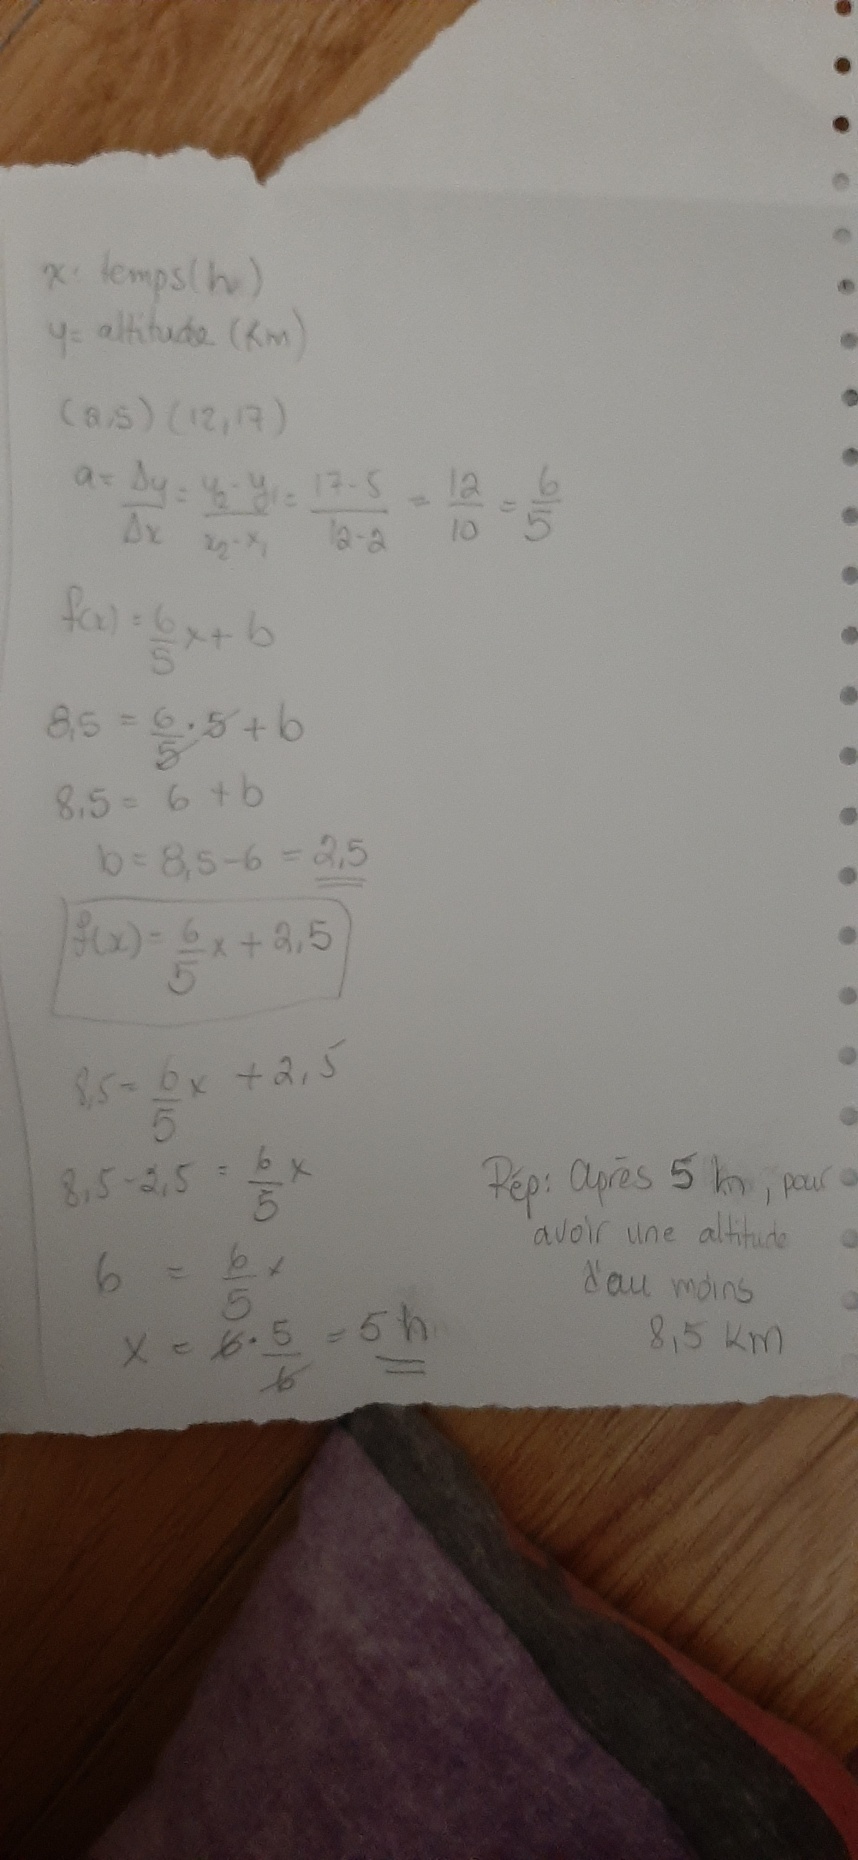 x: temps (h)
y= altitude (Km)
(2,5) (12,17)
a = Δy/Δx = y₂-y₁/x₂-x₁ = 17-5/12-2 = 12/10 = 6/5
f(x) = 6/5 x + b
8,5 = 6/5 · 5 + b
8,5 = 6 + b
b = 8,5-6 = 2,5
f(x) = 6/5 x + 2,5
8,5 = 6/5 x + 2,5
8,5-2,5 = 6/5 x
6 = 6/5 x
x = 6 · 5/6 = 5 h
Rép: Après 5 h, pour
avoir une altitude
d'au moins
8,5 Km